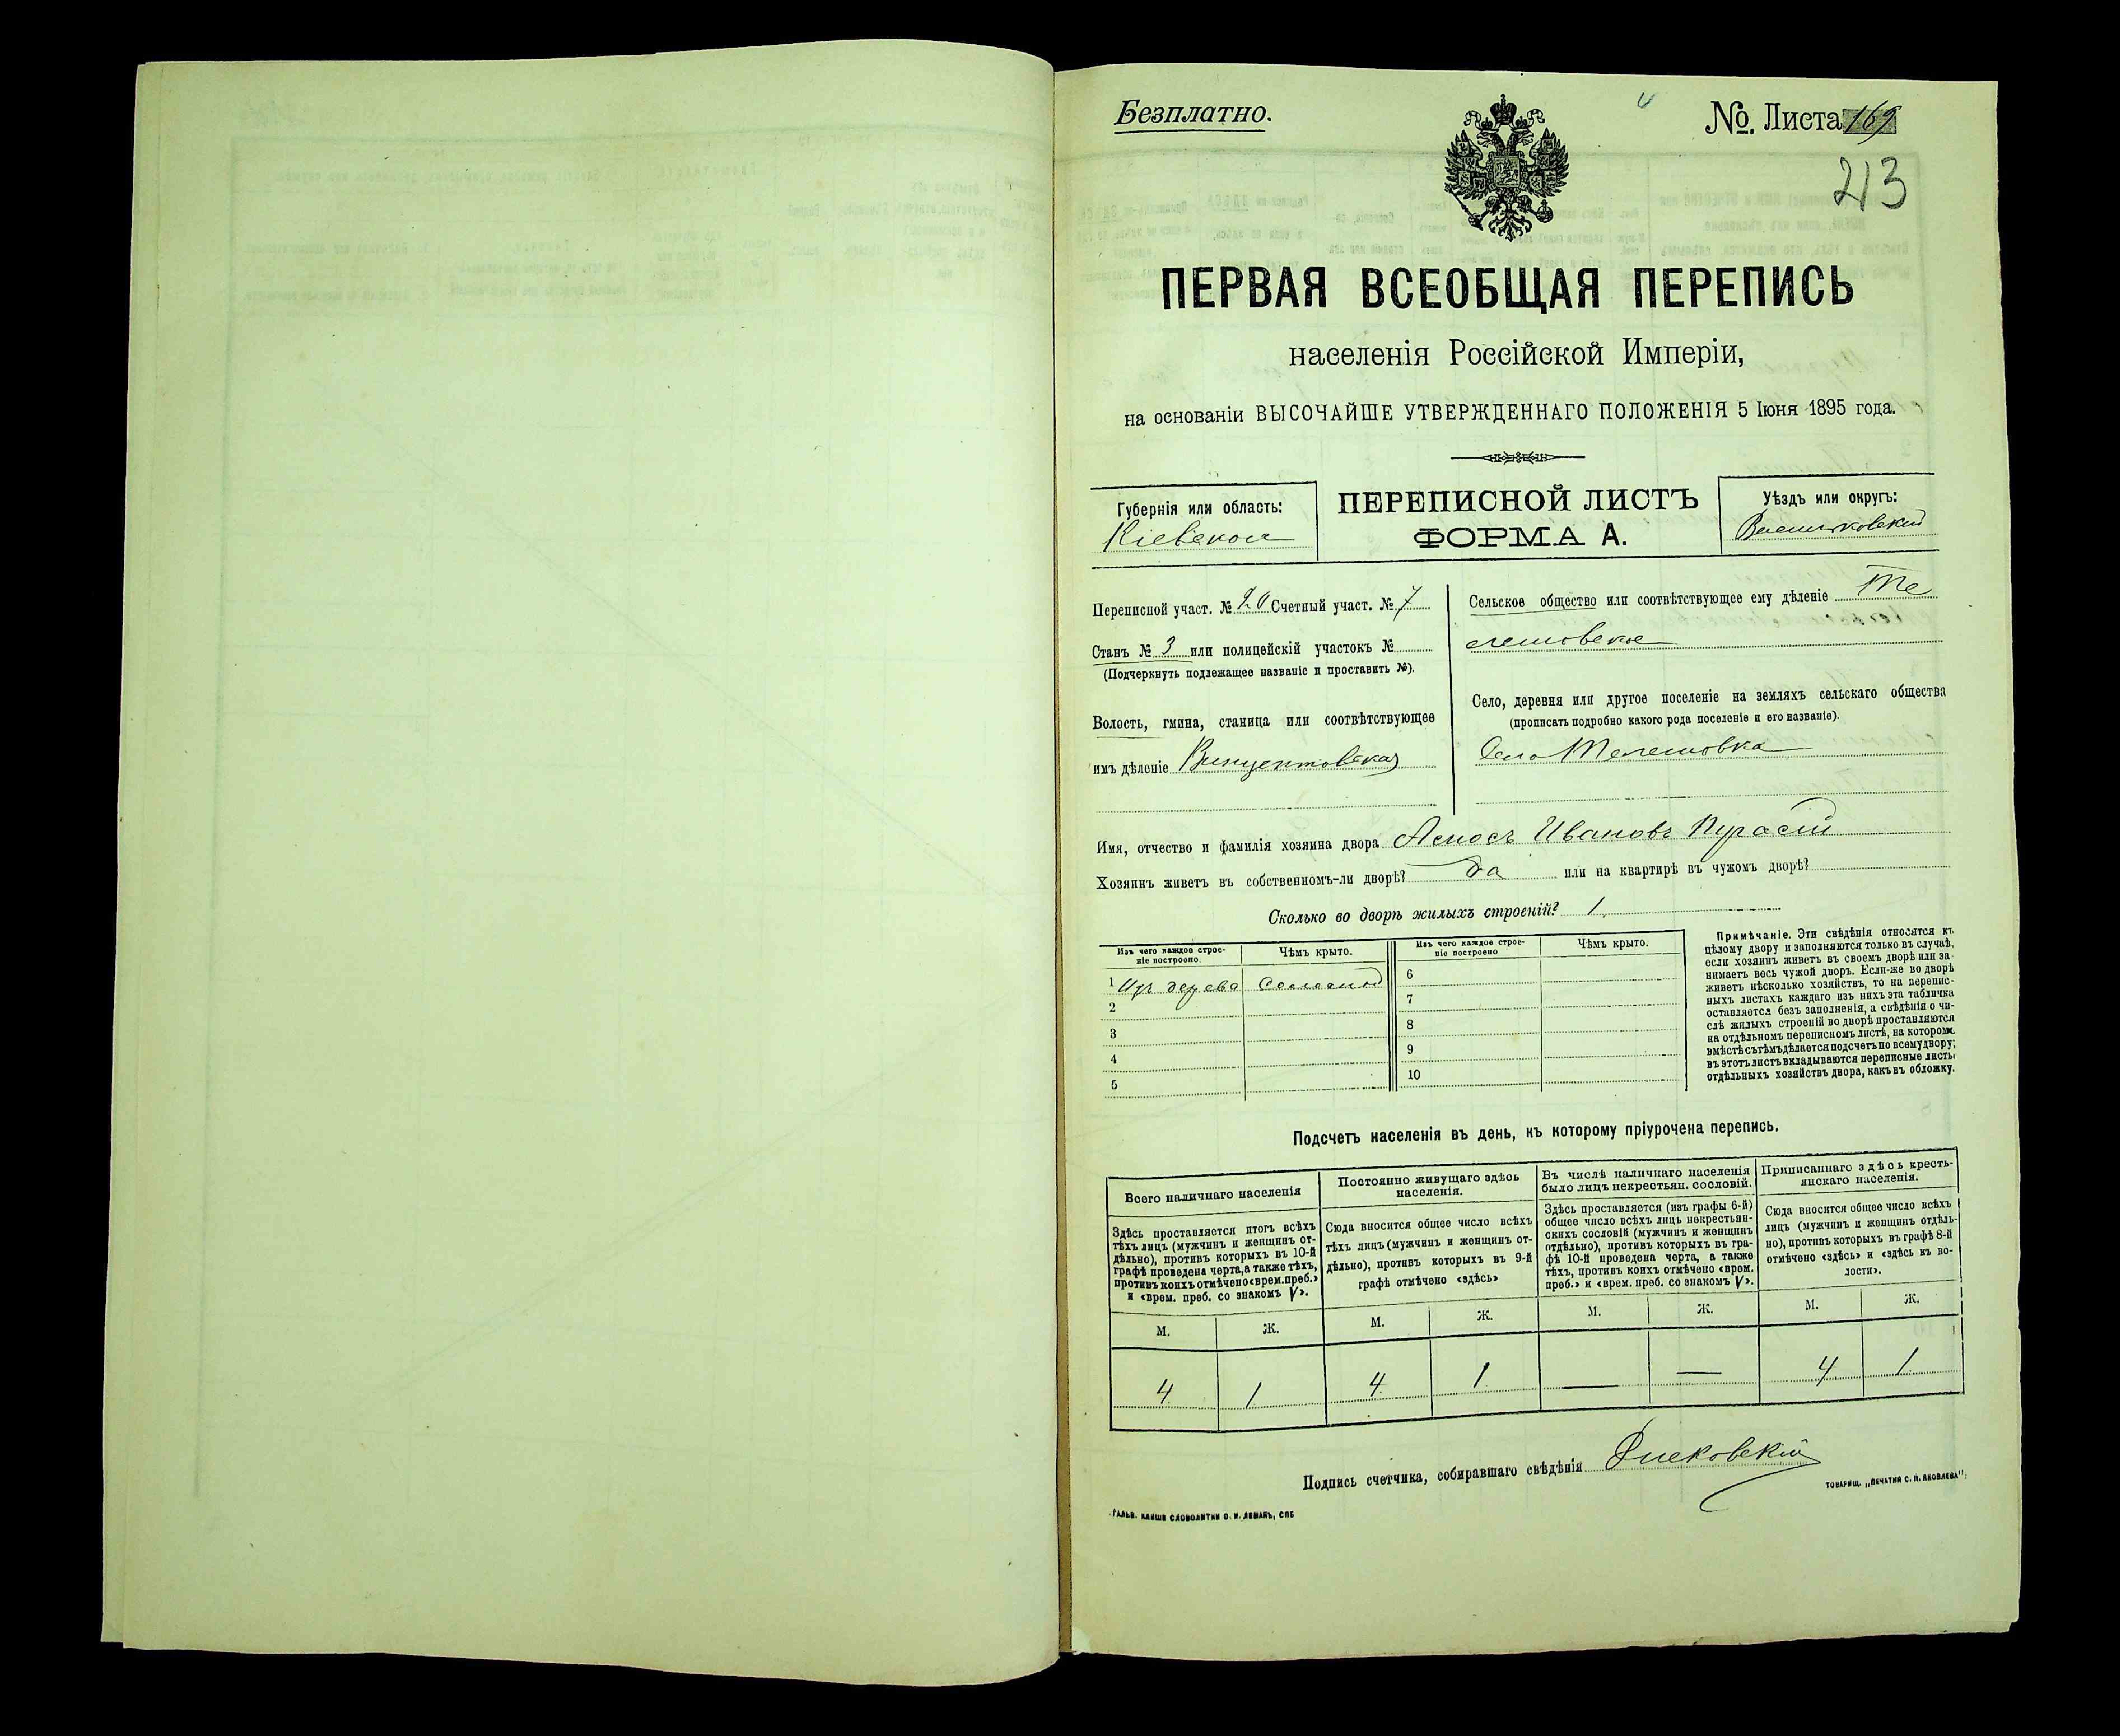 Безплатно.
№. Листа 169
213
ПЕРВАЯ ВСЕОБЩАЯ ПЕРЕПИСЬ
населенія Россійской Имперіи,
на основаніи ВЫСОЧАЙШЕ УТВЕРЖДЕННАГО ПОЛОЖЕНІЯ 5 Іюня 1895 года.
Губернія или область:
Кіевская
ПЕРЕПИСНОЙ ЛИСТЪ
ФОРМА А.
Уѣздъ или округъ:
Васильковскій
Переписной участ. № 20 Счетный участ. № 7
Станъ № 3 или полицейскій участокъ №
(Подчеркнуть подлежащее названіе и проставить №).
Волость, гмина, станица или соотвѣтствующее
имъ дѣленіе Винцентовская
Сельское общество или соотвѣтствующее ему дѣленіе Те
лешовское
Село, деревня или другое поселеніе на земляхъ сельскаго общества
(прописать подробно какого рода поселеніе и его названіе).
Село Телешовка
Имя, отчество и фамилія хозяина двора Ивановъ
Хозяинъ живетъ въ собственномъ-ли дворѣ? да или на квартирѣ въ чужомъ дворѣ?
Сколько во дворѣ жилыхъ строеній? 1.
Изъ чего каждое строе-
ніе построено.
Чѣмъ крыто.
Изъ чего каждое строе-
ніе построено
Чѣмъ крыто.
1 Изъ дерева Соломой
2
3
4
5
6
7
8
9
10
Примѣчаніе. Эти свѣдѣнія относятся къ
цѣлому двору и заполняются только въ случаѣ,
если хозяинъ живетъ въ своемъ дворѣ или за-
нимаетъ весь чужой дворъ. Если-же во дворѣ
живетъ нѣсколько хозяйствъ, то на перепис-
ныхъ листахъ каждаго изъ нихъ эта табличка
оставляется безъ заполненія, а свѣдѣнія о чи-
слѣ жилыхъ строеній во дворѣ проставляются
на отдѣльномъ переписномъ листѣ, на которомъ
вмѣстѣ съ тѣмъ дѣлается подсчетъ по всему двору;
въ этотъ листъ вкладываются переписные листы
отдѣльныхъ хозяйствъ двора, какъ въ обложку.
Подсчетъ населенія въ день, къ которому пріурочена перепись.
Всего наличнаго населенія
Здѣсь проставляется итогъ всѣхъ
тѣхъ лицъ (мужчинъ и женщинъ от-
дѣльно), противъ которыхъ въ 10-й
графѣ проведена черта, а также тѣхъ,
противъ коихъ отмѣчено «врем. преб.»
и «врем. преб. со знакомъ V».
Постоянно живущаго здѣсь
населенія.
Сюда вносится общее число всѣхъ
тѣхъ лицъ (мужчинъ и женщинъ от-
дѣльно), противъ которыхъ въ 9-й
графѣ отмѣчено «здѣсь»
Въ числѣ наличнаго населенія
было лицъ некрестьян. сословій.
Здѣсь проставляется (изъ графы 6-й)
общее число всѣхъ лицъ некрестьян-
скихъ сословій (мужчинъ и женщинъ
отдѣльно), противъ которыхъ въ гра-
фѣ 10-й проведена черта, а также
тѣхъ, противъ коихъ отмѣчено «врем.
преб.» и «врем. преб. со знакомъ V».
Приписаннаго здѣсь кресть-
янскаго населенія.
Сюда вносится общее число всѣхъ
лицъ (мужчинъ и женщинъ отдѣль-
но), противъ которыхъ въ графѣ 8-й
отмѣчено «здѣсь» и «здѣсь къ во-
лости».
М. Ж. М. Ж. М. Ж. М. Ж.
4 1 4 1 — — 4 1
Подпись счетчика, собиравшаго свѣдѣнія
ГАЛЬВ. КЛИШЕ СЛОВОЛИТНИ О. И. ЛЕМАНЪ, СПБ
ТОВАРИЩ. „ПЕЧАТНЯ С. П. ЯКОВЛЕВА“.